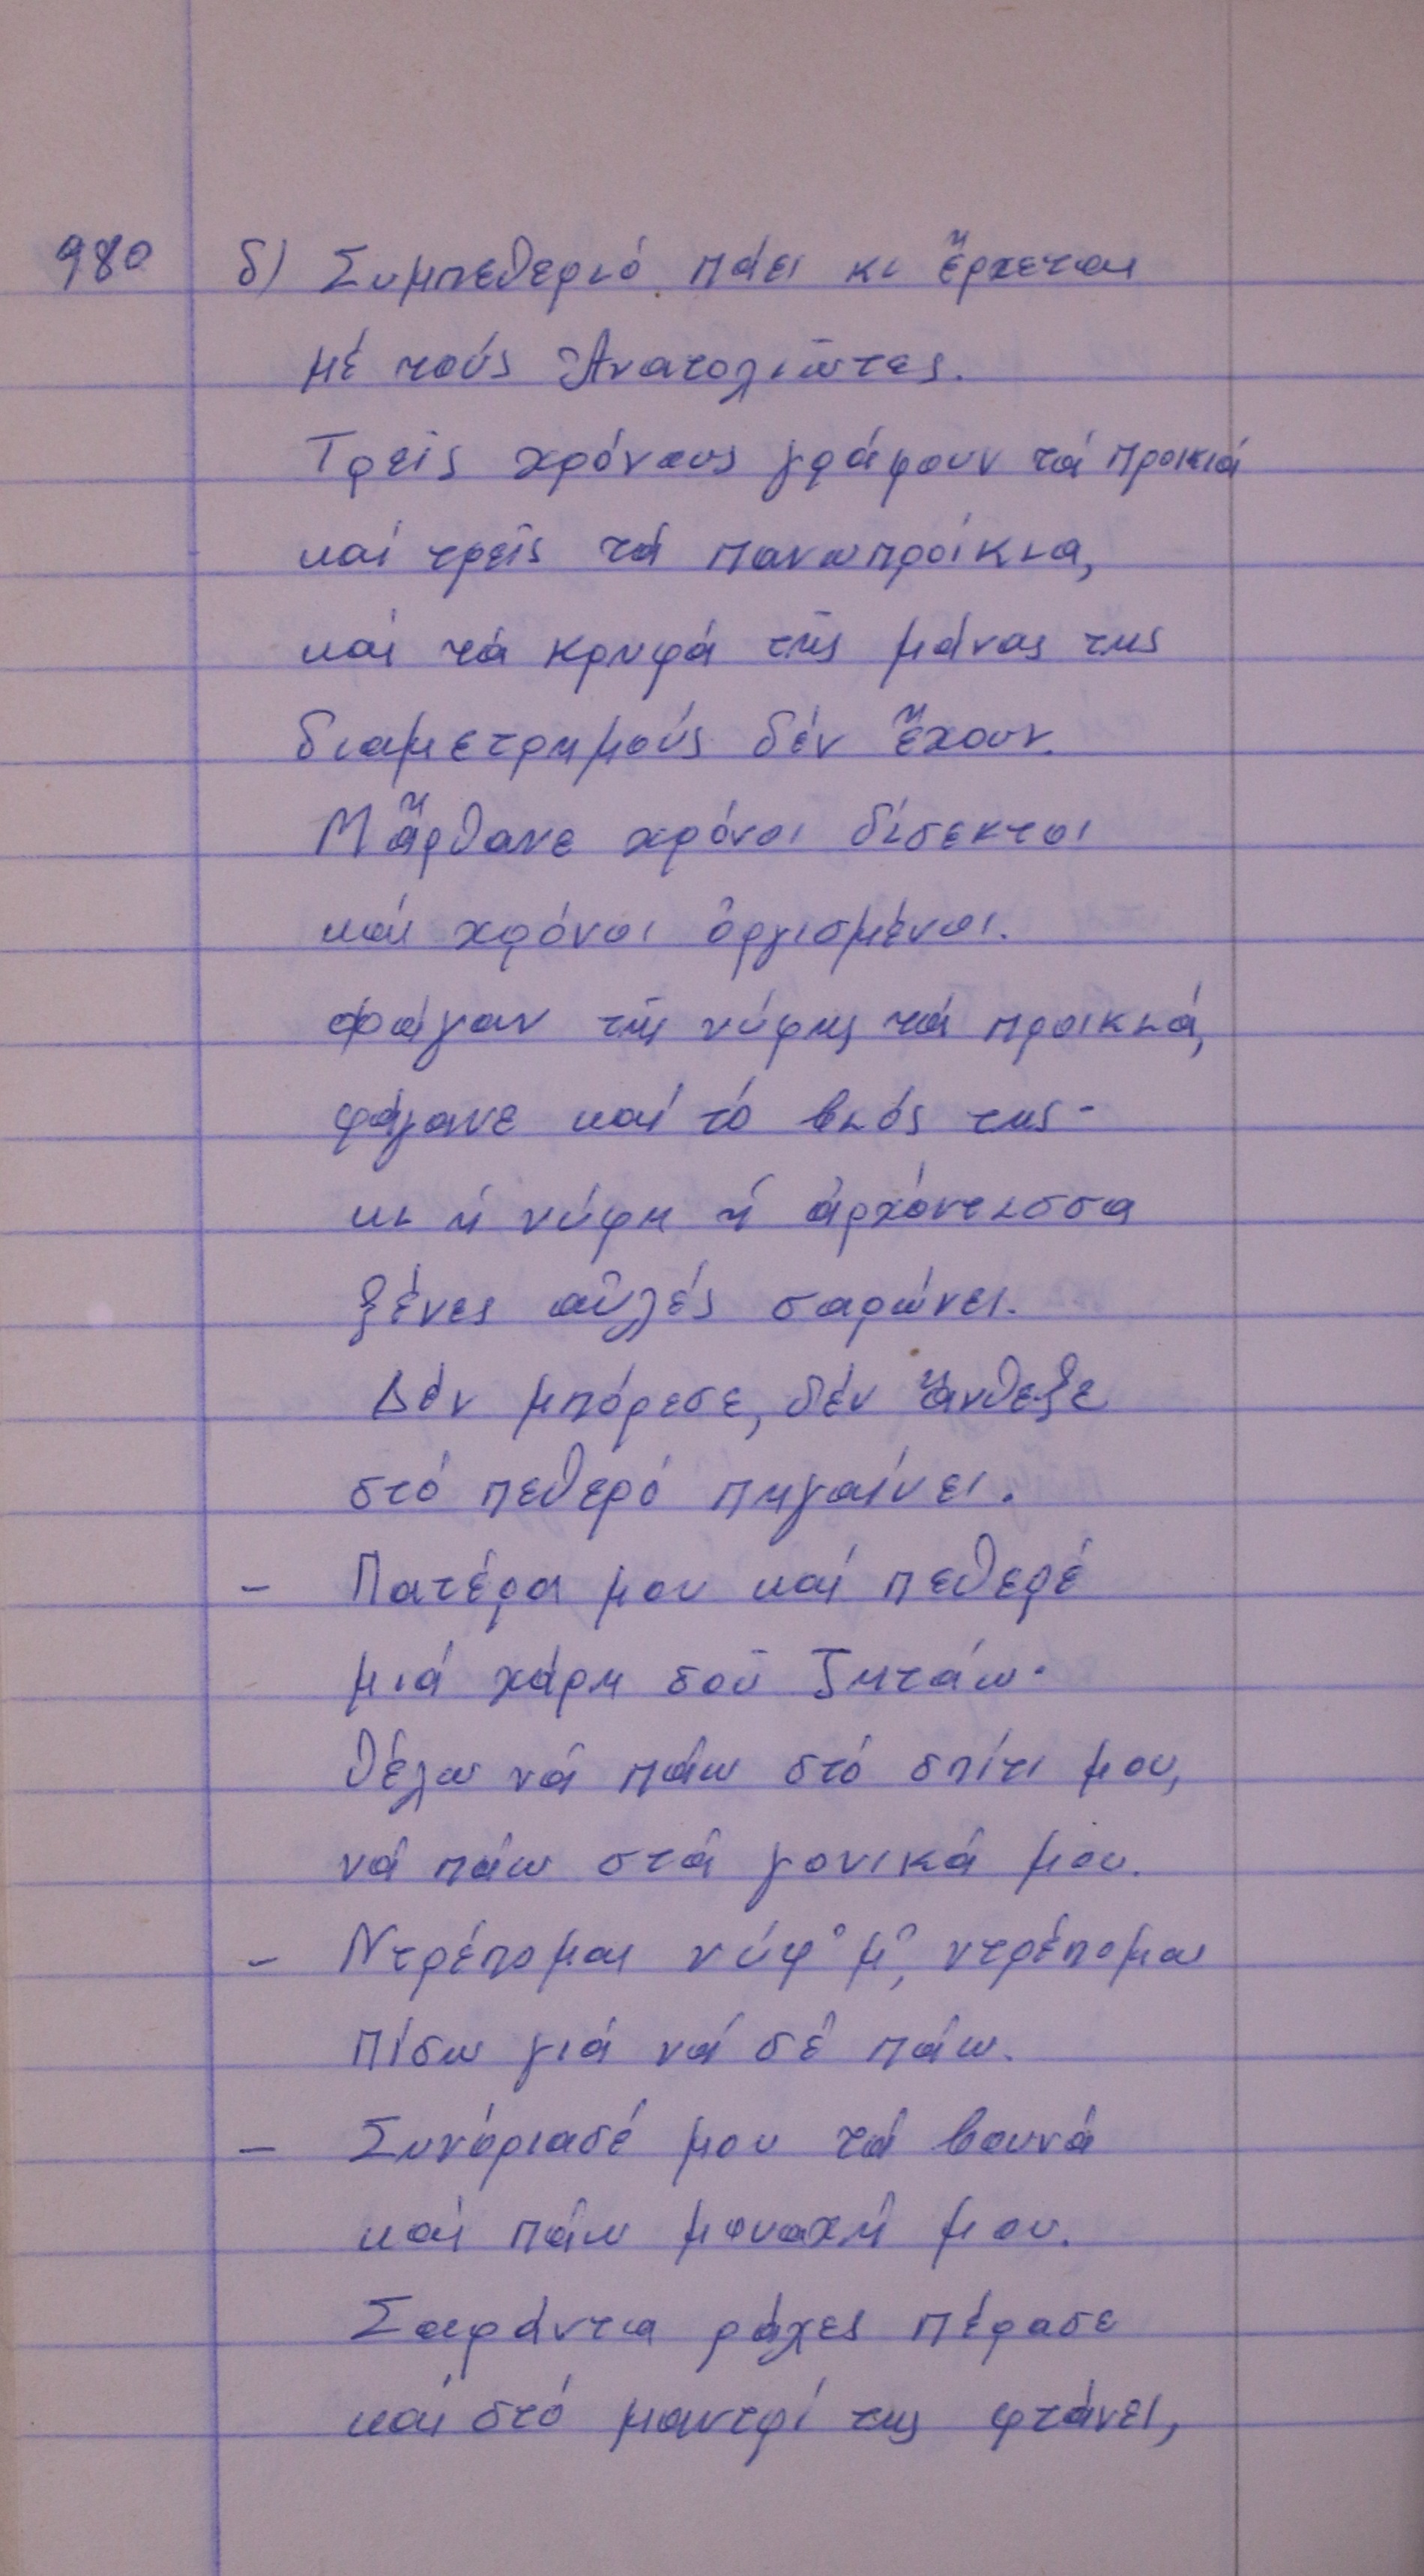 980 δ) Συμπεθεριό πάει κι ἔρχεται
μέ τούς Ἀνατολιῶτες.
Τρεῖς χρόνους γράφουν τά προικιά
καί τρεῖς τά πανωπροίκια,
καί τά κρυφά τῆς μάνας της
διαμετρημούς δέν ἔχουν.
Μἄρθανε χρόνοι δίσεκτοι
καί χρόνοι ὀργισμένοι.
φάγαν τῆς νύφης τά προικιά,
φάγανε καί τό βιός της·
κι ἡ νύφη ἡ ἀρχόντισσα
ξένες αὐλές σαρώνει.
Δέν μπόρεσε, δέν ἄνθεξε
στό πεθερό πηγαίνει.
– Πατέρα μου καί πεθερέ
μιά χάρη σοῦ ζητάω·
θέλω νά πάω στό σπίτι μου,
νά πάω στά γονικά μου.
– Ντρέπομαι νύφ' μ', ντρέπομαι
πίσω γιά νά σέ πάω.
– Συνόριασέ μου τά βουνά
καί πάω μοναχή μου.
Σαράντα ράχες πέρασε
καί στό μαντρί της φτάνει,